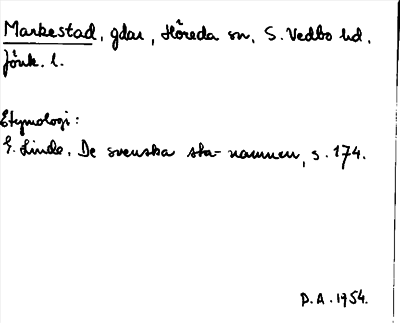 Markestad, gdar, Höreda sn, S. Vedbo hd,
Jönk. l.
Etymologi:
G. Linde, De svenska sta-namnen, s. 174.
D.A. 1954.